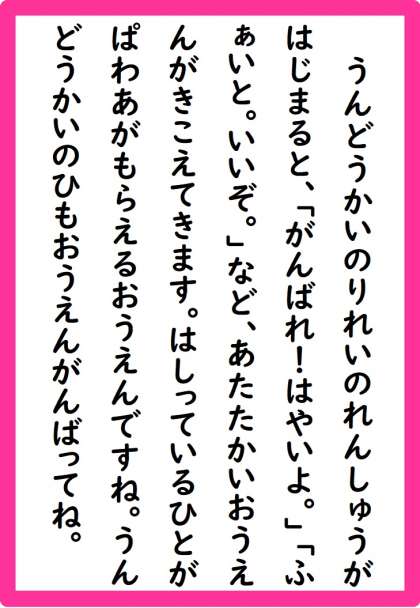 うんどうかいのりれいのれんしゅうが
はじまると、「がんばれ！はやいよ。」「ふ
ぁいと。いいぞ。」など、あたたかいおうえ
んがきこえてきます。はしっているひとが
ぱわあがもらえるおうえんですね。うん
どうかいのひもおうえんがんばってね。